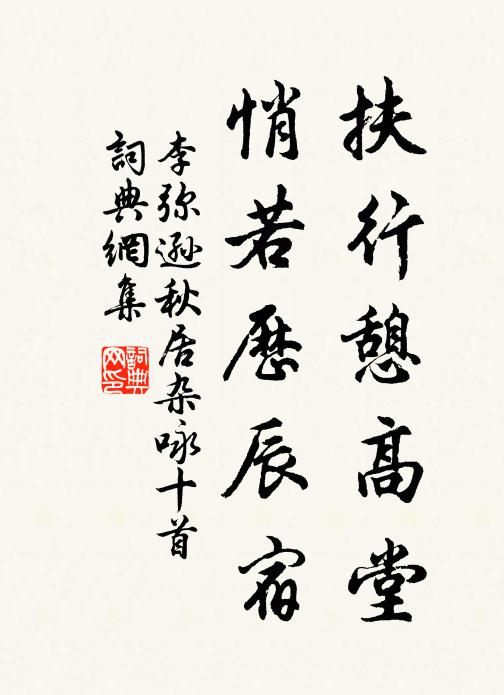 扶行憩高堂
悄若歷辰宿
李弥遜秋居杂咏十首
詞典網集
詞典网印